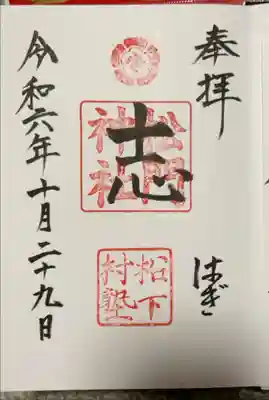 奉拝
はぎ
志
松門神社
松下村塾
令和六年十月二十九日